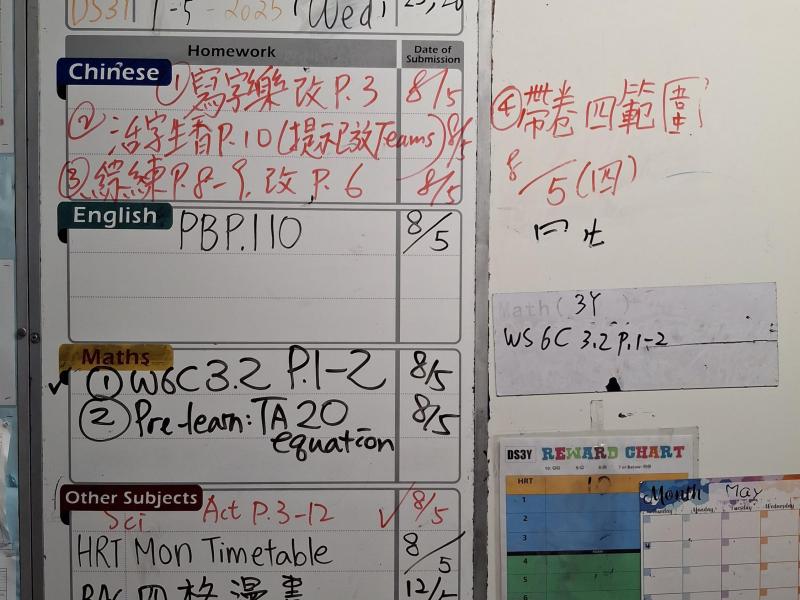 DS3Y 7-5-2025 (Wed)
Homework
Date of Submission
Chinese
① 寫字樂 改 P.3 8/5
② 活字生香 P.10 (提示放 Teams) 8/5
③ 綜練 P.8-9. 改 P.6 8/5
English
PB P.110 8/5
Maths
① W6C 3.2 P.1-2 8/5
② Pre-learn: TA 20 8/5
equation
Other Subjects
Sci Act P.3-12 8/5
HRT Mon Timetable 8/5
四格漫畫 12/5
④ 帶卷四範圍
8/5 (四)
Math( 3Y )
WS 6C 3.2 P.1-2
DS3Y REWARD CHART
HRT
1
2
3
4
5
Month May
Monday Tuesday Wednesday